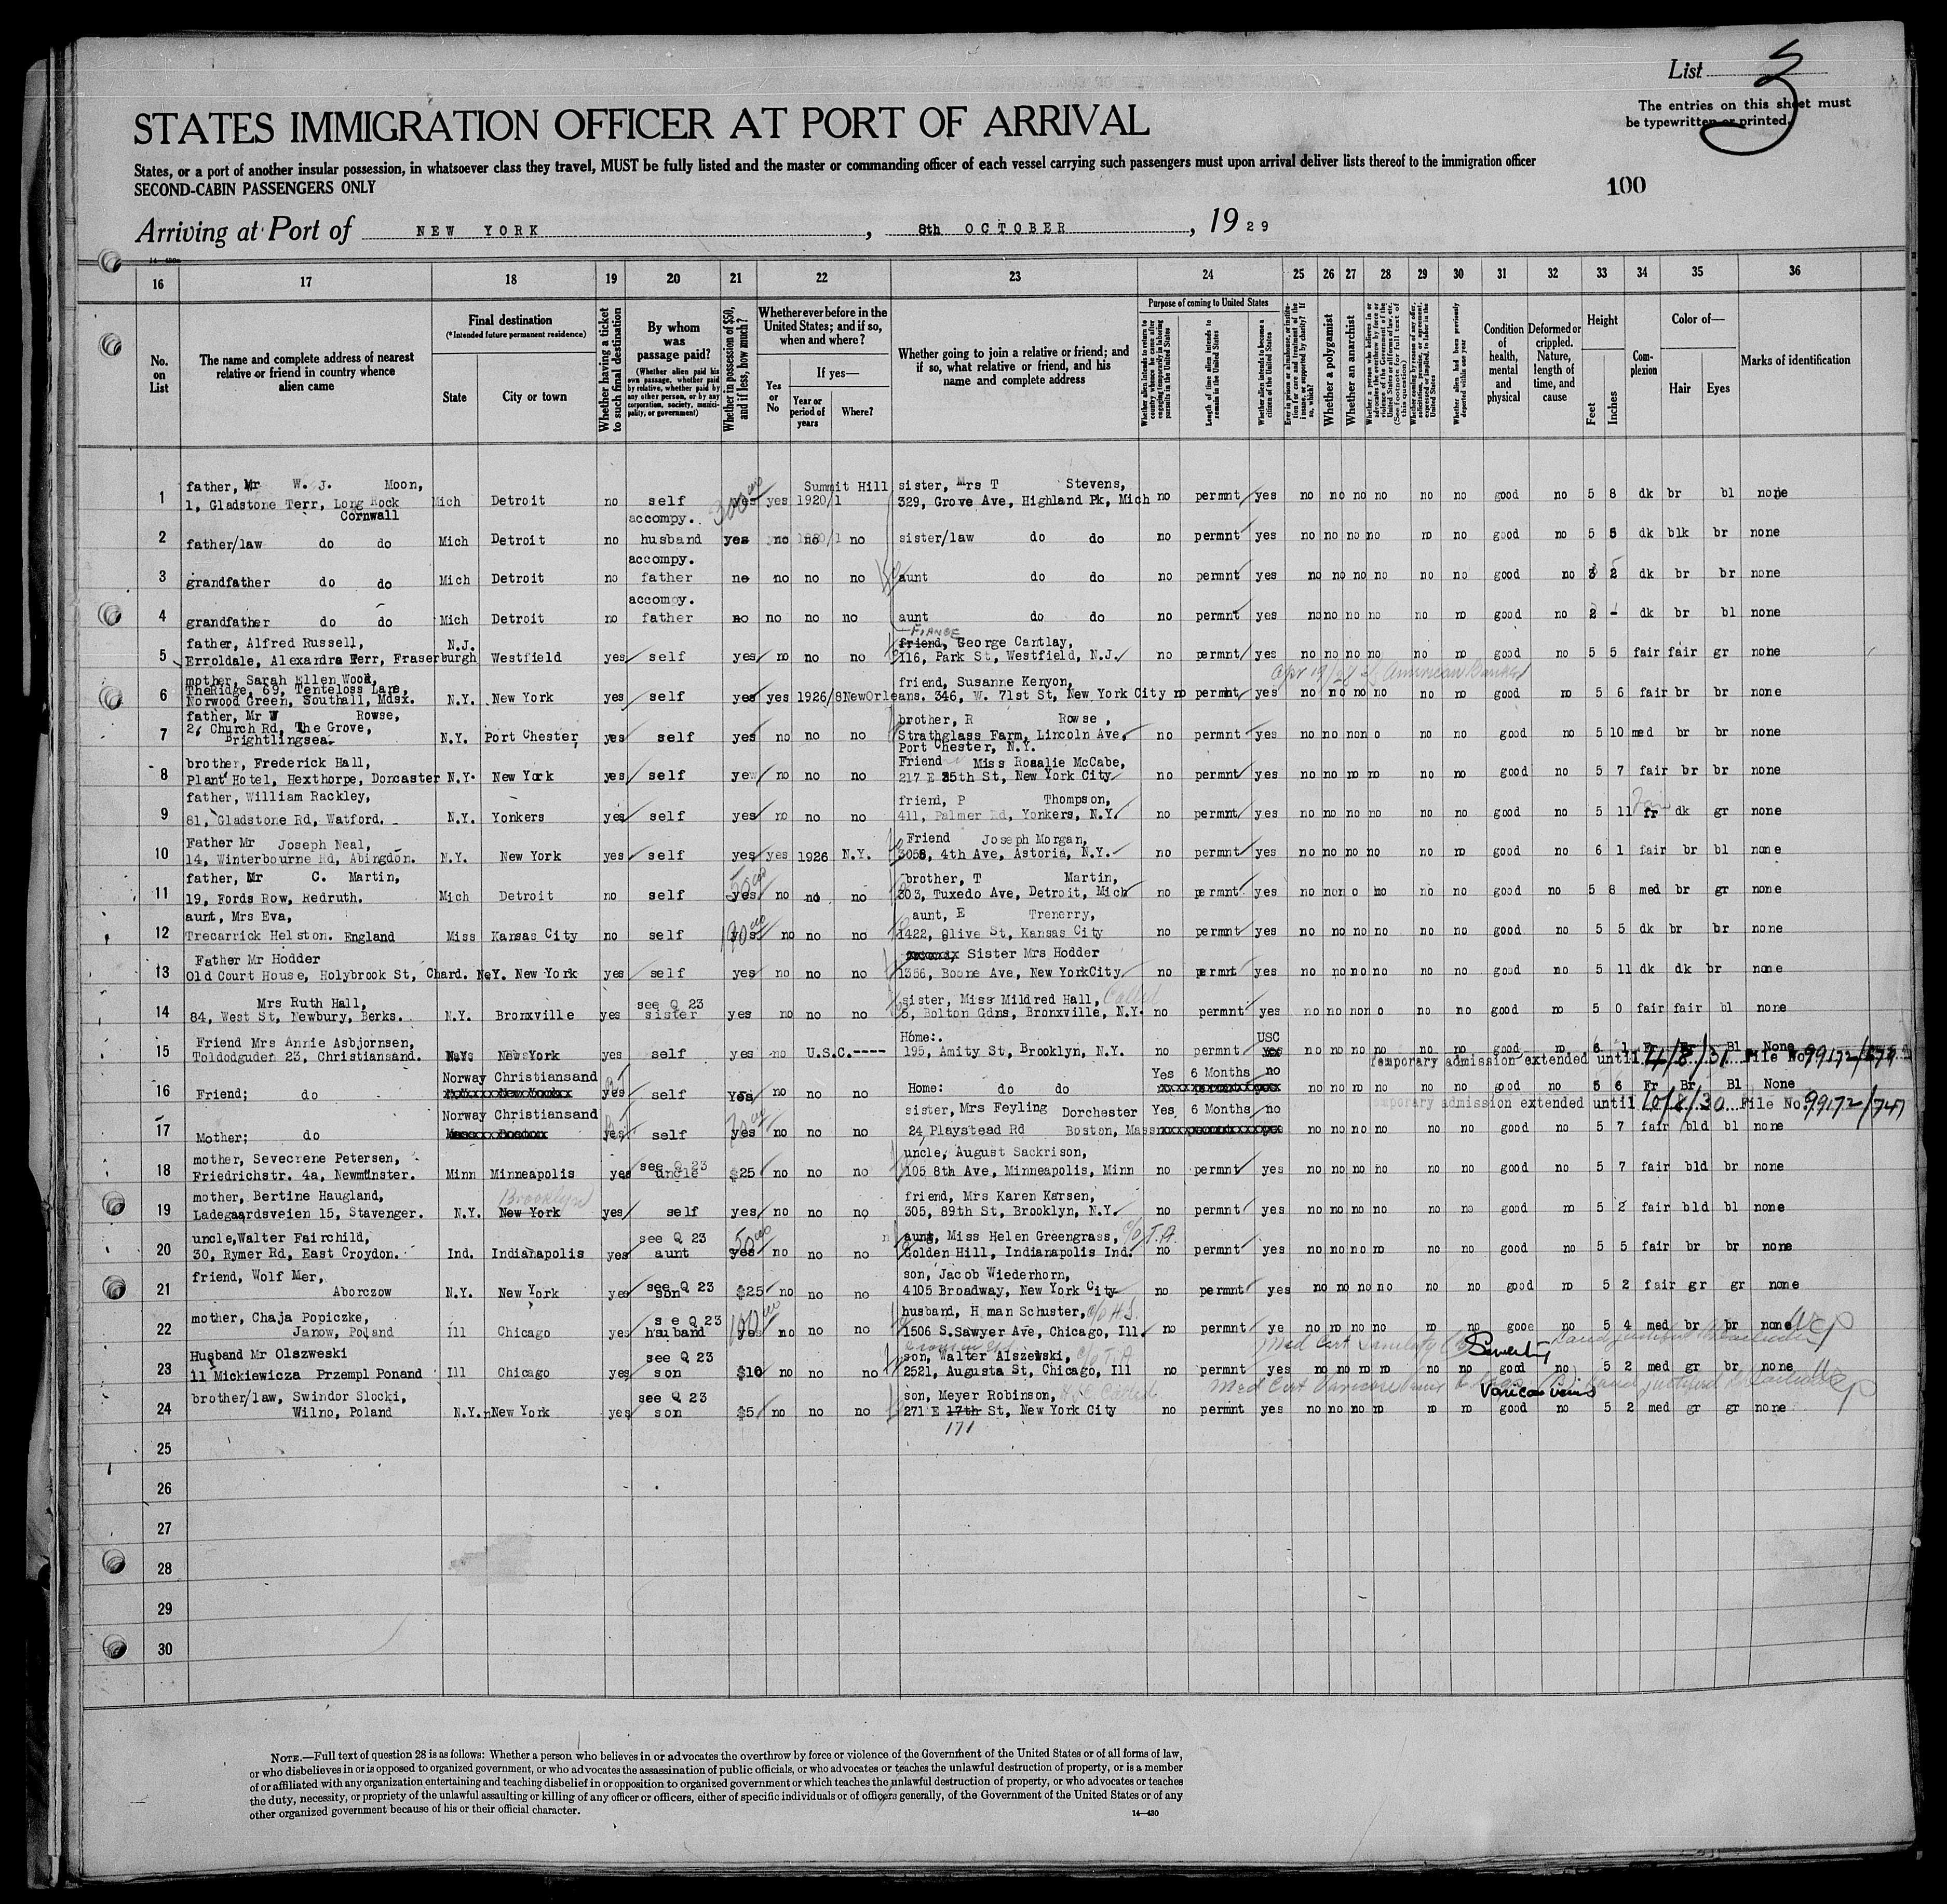 List 3
The entries on this sheet must
be typewritten or printed.
STATES IMMIGRATION OFFICER AT PORT OF ARRIVAL
States, or a port of another insular possession, in whatsoever class they travel, MUST be fully listed and the master or commanding officer of each vessel carrying such passengers must upon arrival deliver lists thereof to the immigration officer
SECOND-CABIN PASSENGERS ONLY
100
Arriving at Port of NEW YORK, 8th OCTOBER, 1929
16 17 18 19 20 21 22 23 24 25 26 27 28 29 30 31 32 33 34 35 36
No. on List
The name and complete address of nearest relative or friend in country whence alien came
Final destination
(*Intended future permanent residence)
State
City or town
Whether having a ticket to such final destination
By whom was passage paid?
(Whether alien paid his own passage, whether paid by relative, whether paid by any other person, or by any corporation, society, municipality, or government)
Whether in possession of $50, and if less, how much?
Whether ever before in the United States; and if so, when and where?
Yes or No
If yes—
Year or period of years
Where?
Whether going to join a relative or friend; and if so, what relative or friend, and his name and complete address
Purpose of coming to United States
Length of time alien intends to remain in the United States
Whether alien intends to become a citizen of the United States
Whether a polygamist
Whether an anarchist
Condition of health, mental and physical
Deformed or crippled. Nature, length of time, and cause
Height
Feet
Inches
Complexion
Color of—
Hair
Eyes
Marks of identification
1 father, Mr W. J. Moon, Summit Hill sister, Mrs T Stevens,
1, Gladstone Terr, Long Rock Cornwall Mich Detroit no self yes yes 1920/1 329, Grove Ave, Highland Pk, Mich no permnt yes no no no no no no good no 5 8 dk br bl none
2 father/law do do Mich Detroit no accompy. husband yes no no no sister/law do do no permnt yes no no no no no no good no 5 5 dk blk br none
3 grandfather do do Mich Detroit no accompy. father no no no no aunt do do no permnt yes no no no no no no good no 3 2 dk br br none
4 grandfather do do Mich Detroit no accompy. father no no no no aunt do do no permnt yes no no no no no no good no 2 - dk br bl none
5 father, Alfred Russell, N.J. FIANCE friend, George Cantlay,
Erroldale, Alexandra Terr, Fraserburgh Westfield yes self yes no no no 116, Park St, Westfield, N.J. no permnt yes no no no no no no good no 5 5 fair fair gr none
6 mother, Sarah Ellen Wood, friend, Susanne Kenyon,
TheRidge, 69, Tenteloss Lane,
Norwood Green, Southall, Mdsx. N.Y. New York yes self yes yes 1926/8 NewOrleans. 346, W. 71st St, New York City no permnt yes no no no no no no good no 5 6 fair br br none
7 father, Mr W Rowse, brother, R Rowse,
2, Church Rd, The Grove,
Brightlingsea. N.Y. Port Chester yes self yes no no no Strathglass Farm, Lincoln Ave,
Port Chester, N.Y. no permnt yes no no non o no no good no 5 10 med br br none
8 brother, Frederick Hall, Friend Miss Rosalie McCabe,
Plant Hotel, Hexthorpe, Doncaster N.Y. New York yes self yew no no no 217 E 35th St, New York City no permnt yes no no no no no no good no 5 7 fair br br none
9 father, William Rackley, friend, P Thompson,
81, Gladstone Rd, Watford. N.Y. Yonkers yes self yes no no no 411, Palmer Rd, Yonkers, N.Y. no permnt yes no no no no no no good no 5 11 fr dk gr none
10 Father Mr Joseph Neal, Friend Joseph Morgan,
14, Winterbourne Rd, Abingdon. N.Y. New York yes self yes yes 1926 N.Y. 3058, 4th Ave, Astoria, N.Y. no permnt yes no no no no no no good no 6 1 fair br bl none
11 father, Mr C. Martin, brother, T Martin,
19, Fords Row, Redruth. Mich Detroit no self yes no no no 203, Tuxedo Ave, Detroit, Mich no permnt yes no non o no no no good no 5 8 med br gr none
12 aunt, Mrs Eva, aunt, E Trenerry,
Trecarrick Helston. England Miss Kansas City no self yes no no no 1422, Olive St, Kansas City no permnt yes no no no no no no good no 5 5 dk br br none
13 Father Mr Hodder Sister Mrs Hodder
Old Court House, Holybrook St, Chard. NeY. New York yes self yes no no no 1356, Boone Ave, New YorkCity no permnt yes no no no no no no good no 5 11 dk dk br none
14 Mrs Ruth Hall, see Q 23 sister, Miss Mildred Hall, Called
84, West St, Newbury, Berks. N.Y. Bronxville yes sister yes no no no 5, Bolton Gdns, Bronxville, N.Y. no permnt yes no no non o no no good no 5 0 fair fair bl none
15 Friend Mrs Annie Asbjornsen, Home:. USC
Toldodguden 23, Christiansand. N.Y. New York yes self yes no U.S.C.---- 195, Amity St, Brooklyn, N.Y. no permnt yes no no no no no no good no 6 1 Fr Br Bl None
Temporary admission extended until 4/8/31 File No. 99172/
16 Friend; do Norway Christiansand yes self yes no no no Home: do do Yes 6 Months no no no no no no no good no 5 6 Fr Br Bl None
Temporary admission extended until 10/8/30 File No. 99172/747
17 Mother; do Norway Christiansand yes self yes no no no sister, Mrs Feyling Dorchester
24 Playstead Rd Boston, Mass Yes 6 Months no no no no no no no good no 5 7 fair bld bl none
18 mother, Severene Petersen, see Q 23 uncle, August Sackrison,
Friedrichstr. 4a, Newmünster. Minn Minneapolis yes uncle $25 no no no 105 8th Ave, Minneapolis, Minn no permnt yes no no no no no no good no 5 7 fair bld br none
19 mother, Bertine Haugland, Brooklyn friend, Mrs Karen Karsen,
Ladegaardsveien 15, Stavenger. N.Y. New York yes self yes no no no 305, 89th St, Brooklyn, N.Y. no permnt yes no no no no no no good no 5 2 fair bld bl none
20 uncle,Walter Fairchild, see Q 23 aunt, Miss Helen Greengrass, c/o T.A.
30, Rymer Rd, East Croydon. Ind. Indianapolis yes aunt yes no no no Golden Hill, Indianapolis Ind. no permnt yes no no no no no no good no 5 5 fair br br none
21 friend, Wolf Mer, see Q 23 son, Jacob Wiederhorn,
Aborczow N.Y. New York yes son $25 no no no 4105 Broadway, New York City no permnt yes no no no no no no good no 5 2 fair gr gr none
22 mother, Chaja Popiczke, s e Q 23 husband, H man Schuster, c/o H.S.
Janow, Poland Ill Chicago yes husband yes no no no 1506 S.Sawyer Ave, Chicago, Ill. no permnt ye no no no no no no gooe no 5 4 med br br none
Med Cert Senility Senility
23 Husband Mr Olszweski see Q 23 son, Walter Alszewski, c/o T.A
11 Mickiewicza Przempl Ponand Ill Chicago yes son $10 no no no 2521, Augusta St, Chicago, Ill no permnt yes no no no no no no good no 5 2 med gr br none
Med Cert Varicose Veins Varicose veins
24 brother/law, Swindor Slocki, see Q 23 son, Meyer Robinson,
Wilno, Poland N.Y. New York yes son $5 no no no 271 E 17th St, New York City no permnt yes no no no no no no good no 5 2 med gr gr none
171
25
26
27
28
29
30
NOTE.—Full text of question 28 is as follows: Whether a person who believes in or advocates the overthrow by force or violence of the Government of the United States or of all forms of law,
or who disbelieves in or is opposed to organized government, or who advocates the assassination of public officials, or who advocates or teaches the unlawful destruction of property, or is a member
of or affiliated with any organization entertaining and teaching disbelief in or opposition to organized government or which teaches the unlawful destruction of property, or who advocates or teaches
the duty, necessity, or propriety of the unlawful assaulting or killing of any officer or officers, either of specific individuals or of officers generally, of the Government of the United States or of any
other organized government because of his or their official character.
14—430